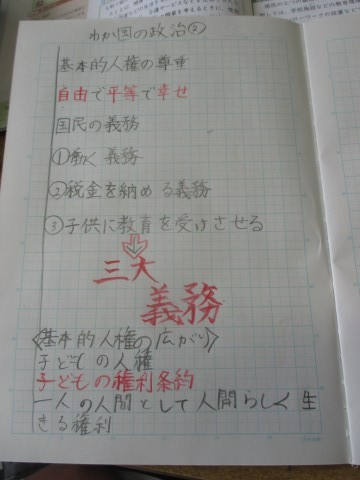 わが国の政治②
基本的人権の尊重
自由で平等で幸せ
国民の義務
①働く義務
②税金を納める義務
③子供に教育を受けさせる
三大
義務
《基本的人権の広がり》
子どもの人権
子どもの権利条約
一人の人間として人間らしく生
きる権利